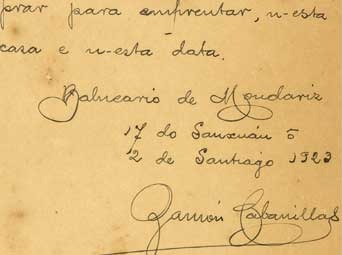 prar para emprentar, n-esta
casa e n-esta data.
Balneario de Mondariz
17 do Sanxuán ô
2 de Santiago 1923
Ramón Cabanillas